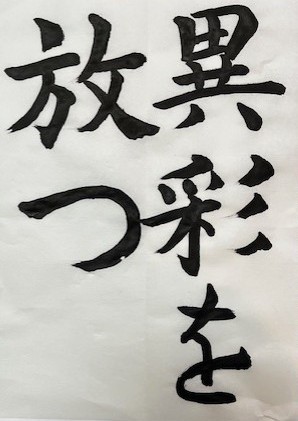 異彩を
放つ